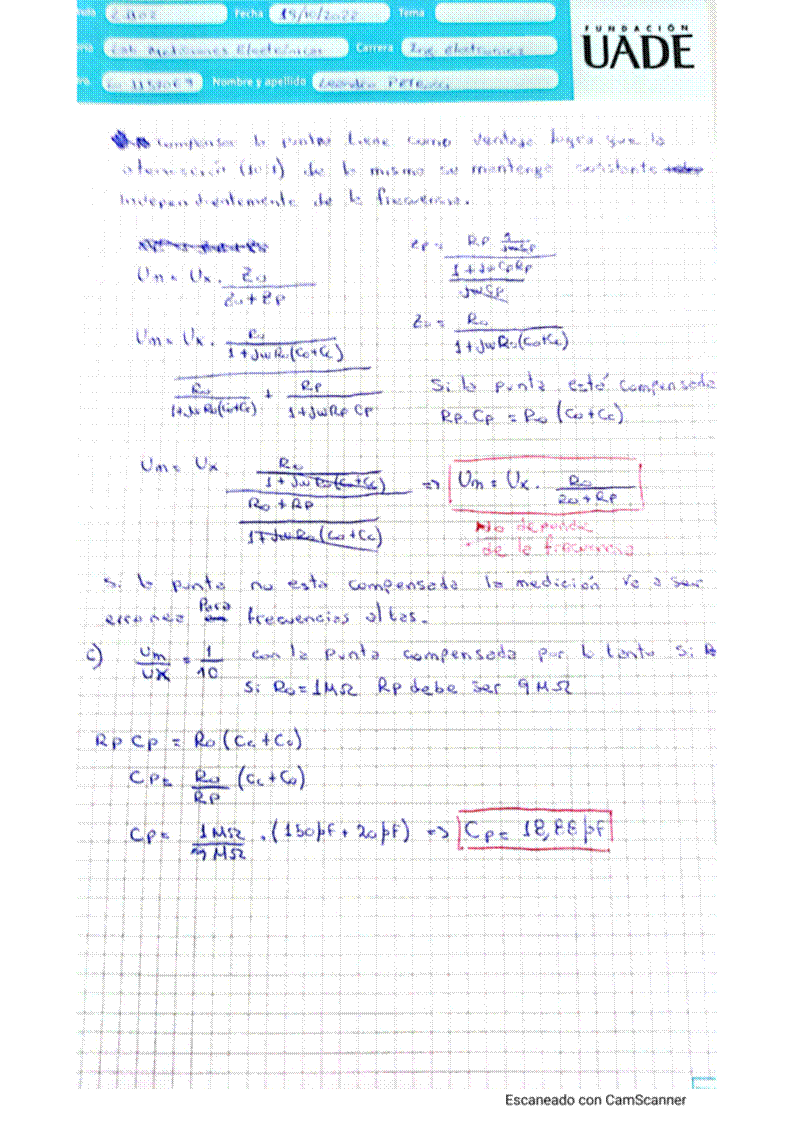 Fecha 19/10/2022 Tema
FUNDACIÓN
UADE
Lab Mediciones Electrónicas Carrera Ing. Electronica
Nombre y apellido Leandro
compensar la punta tiene como ventaja logra que la
atenuación (10:1) de la misma se mantenga constante
independientemente de la frecuencia.
Um = Ux . Zo / (Zo + Zp)
Zp = Rp 1/(jwCp) / ((1 + jwCpRp) / jwCp)
Um = Ux . (Ro / (1 + jwRo(Co+Cc))) / (Ro / (1+jwRo(Co+Cc)) + Rp / (1+jwRp Cp))
Zo = Ro / (1+jwRo(Co+Cc))
Si la punta está compensada
Rp. Cp = Ro (Co+Cc)
Um = Ux (Ro / (1+jwRo(Co+Cc))) / ((Ro + Rp) / (1+jwRo(Co+Cc))) => Um = Ux . Ro / (Ro + Rp)
No depende
de la frecuencia
Si la punta no esta compensada la medición va a ser
erronea para frecuencias altas.
c) Um/Ux = 1/10 con la punta compensada por lo tanto si
Si Ro = 1MΩ Rp debe ser 9MΩ
Rp Cp = Ro (Cc + Co)
Cp = Ro/Rp (Cc + Co)
Cp = 1MΩ/9MΩ . (150pF + 20pF) => Cp = 18,88 pF
Escaneado con CamScanner